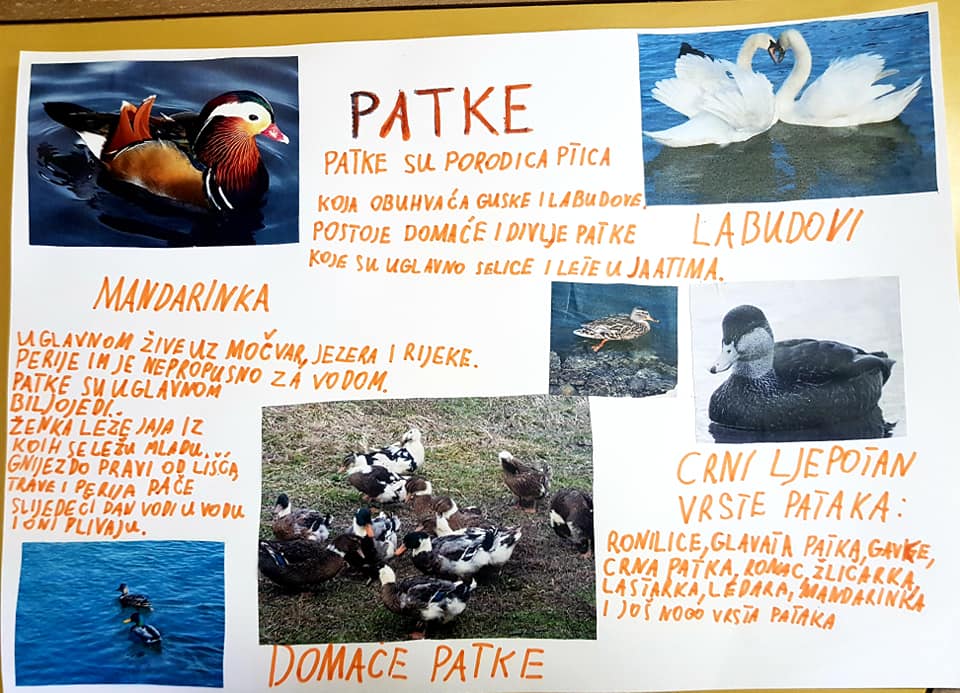 PATKE
PATKE SU PORODICA PTICA
KOJA OBUHVAĆA GUSKE I LABUDOVE.
POSTOJE DOMAĆE I DIVLJE PATKE
KOJE SU UGLAVNO SELICE I LETE U JAATIMA.
LABUDOVI
MANDARINKA
UGLAVNOM ŽIVE UZ MOČVAR, JEZERA I RIJEKE.
PERIJE IM JE NEPROPUSNO ZA VODOM.
PATKE SU UGLAVNOM
BILJOJEDI..
ŽENKA LEŽE JAJA IZ
KOIH SE LEŽU MLADU...
GNIJEZDO PRAVI OD LIŠĆA,
TRAVE I PERIJA PAČE
SLIJEDEĆI DAN VODI U VODU
I ONI PLIVAJU.
DOMAĆE PATKE
CRNI LJEPOTAN
VRSTE PATAKA:
RONILICE, GLAVATA PATKA, GAVKE,
CRNA PATKA, RONAC, ŽLIČARKA,
LASTARKA, LEDARA, MANDARINKA
I JOŠ NOGO VRSTA PATAKA